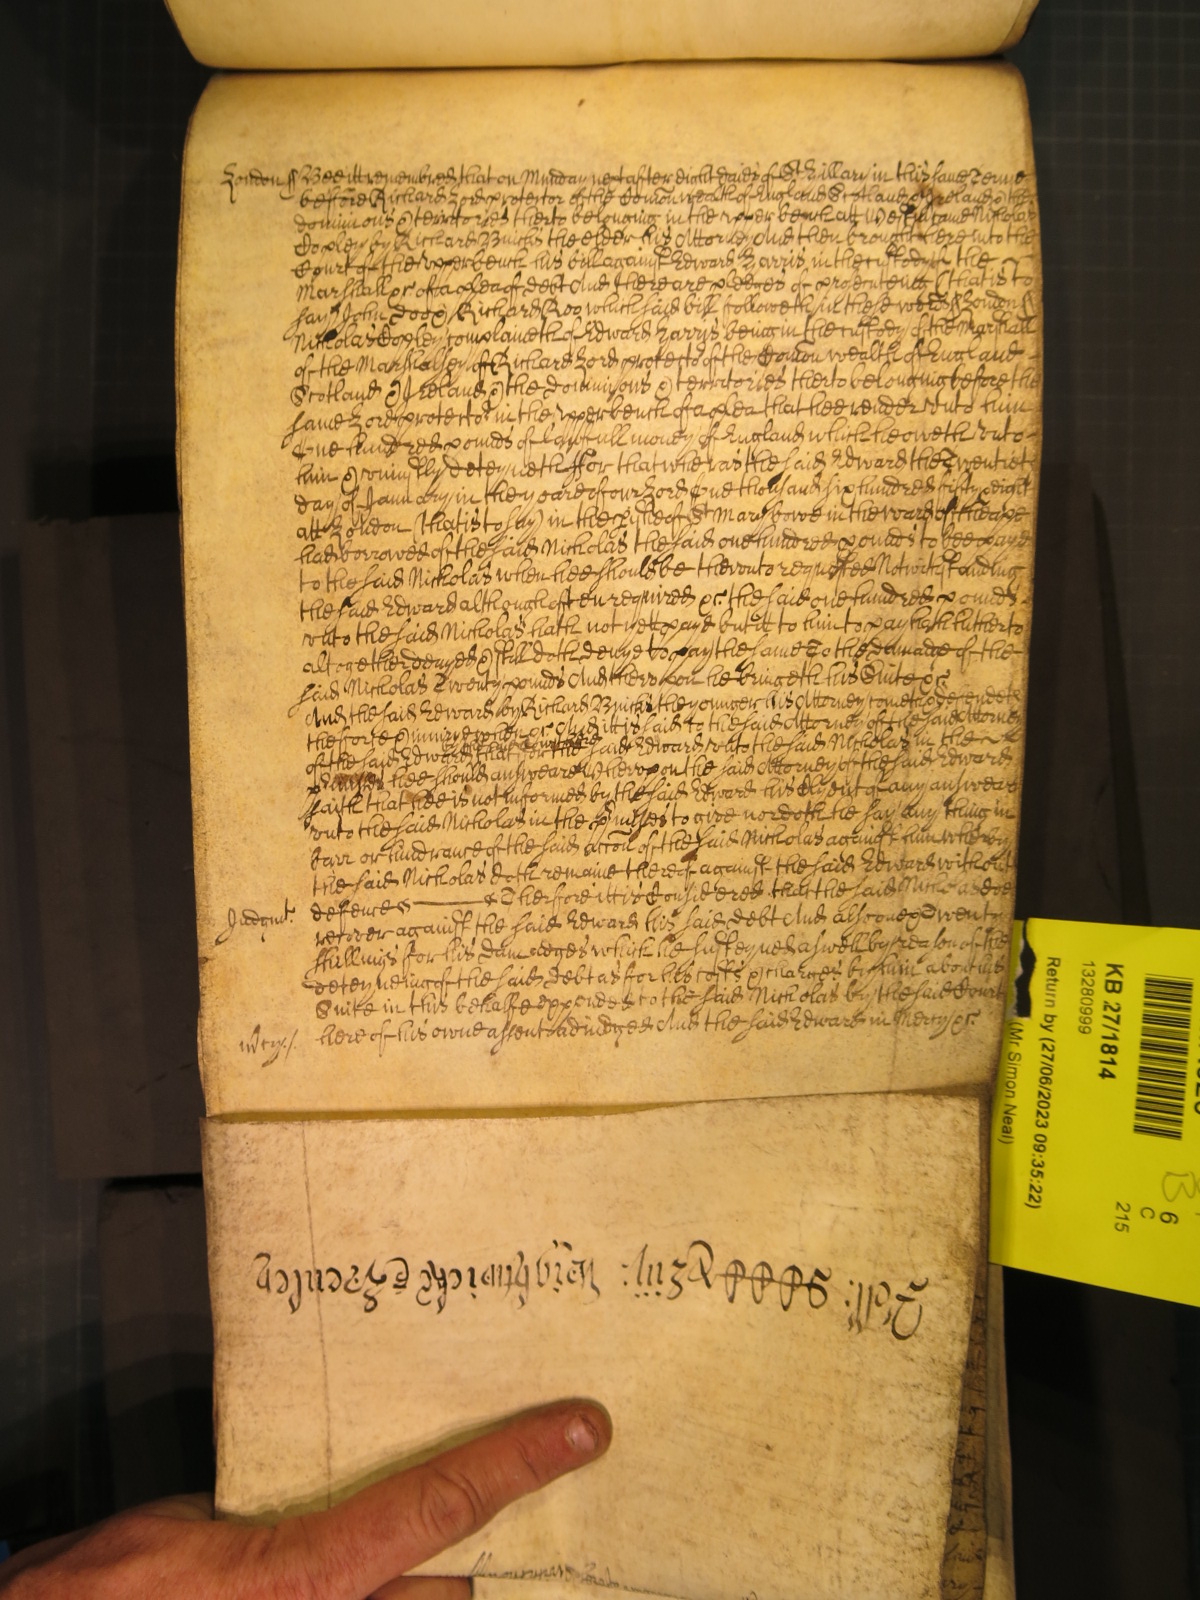 London ss Bee itt remembred that on Munday next after eight daies of St Hillary in this same Terme
before Richard Lord protector of the Comon wealth of England Scotland & Ireland & the
dominions & territories therto belonging in the upper bench att Westm came Nicholas
Copley by Richard Buicks the elder his Attorney And then brought here into the
Court of the upper bench his bill against Edward Harris in the custody of the
Marshall &c of a plea of debt And there are pledges of prosecuteing (that is to
say) John Doo & Richard Roo which said bill followeth in these words ss London ss
Nicholas Copley complaineth of Edward Harrys being in the custody of the Marshall
of the Marshalsey of Richard Lord protector of the Comon wealth of England
Scotland & Ireland & the dominions & territories therto belonging before the
same Lord protector in the upper bench of a plea that hee render unto him
One hundred pounds of lawfull money of England which he oweth unto
him & wrongfully deteyneth ffor that wheras the said Edward the Twentieth
day of January in the yeare of our Lord One thousand six hundred fifty eight
att London (that is to say) in the p'ish of St Mary bowe in the ward of Cheape
had borrowed of the said Nicholas the said one hundred pounds to bee payd
to the said Nicholas when hee should be therunto requested Notwithstanding
the said Edward although often required &c the said one hundred pounds
unto the said Nicholas hath not yet payd but it to him to pay hath hitherto
altogether denyed & still doth denye to pay the same To the damage of the
said Nicholas Twenty pounds And therupon he bringeth his Suite &c
And the said Edward by Richard Buicks the younger his Attorney cometh & defendeth
the force & iniury when &c And itt is said to the said Attorney of the said Attorney
of the said Edward that for the said Edward unto the said Nicholas in the
p'misses hee should answeare Wherupon the said Attorney of the said Edward
saith that hee is not informed by the said Edward his Clyent of any answeare
unto the said Nicholas in the p'misses to give nor doth he say any thing in
barr or hindrance of the said accon of the said Nicholas against him wherby
the said Nicholas doth remaine therof against the said Edward without
Judgmt. defence &c Therfore itt is Considered that the said Nicholas doe
recover against the said Edward his said debt And also Twenty
shillings for his damadges which he susteyned aswell by reason of the
deteyneing of the said debt as for his costs & charges by him about his
Suite in this behalfe expended to the said Nicholas by the said Court
Mercy./. here of his owne assent adiudged And the said Edward in Mercy &c
Roll:
Wightwicke & Henley
KB 27/1814
13280999
Return by (27/06/2023 09:35:22)
(Mr Simon Neal)
6
C
215